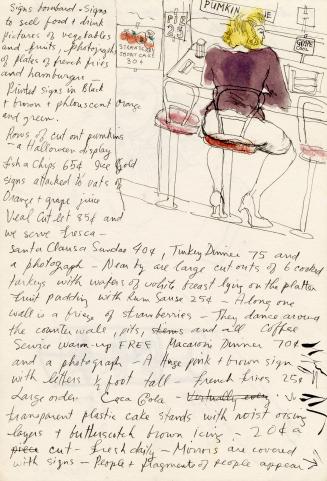 Signs bombard - Signs
to sell food + drink
pictures of vegetables
and fruits, photographs
of plates of french fries
and hamburgers
Printed signs in Black
+ brown + phlourscent orange
and green.
Rows of cut out pumkins
- a Halloween display
fish a chips 65¢ Ice Cold
signs attached to vats of
Orange + grape juice
Veal Cutlet 85¢ and
we serve fresca -
Santa Clausa Sundae 40¢, Turkey Dinner 75 and
a photograph - Near by are large cut outs of 6 cooked
turkeys with wafers of white breast lying on the platter
fruit pudding with Rum Sauce 25¢ - Along one
wall is a frieze of strawberries - They dance around
the counter wall, pits, stems and all Coffee
Service warm up FREE Macaroni Dinner 70¢
and a photograph - A Huge pink + brown sign
with letters ½ foot tall - french fries 25¢
Large order Coca Cola -
transparent plastic cake stands with moist orange
layers + butterscotch brown icing. 20¢ a
piece cut - fresh daily - Mirrors are covered
with signs - People + fragments of people appear →
PIE
25¢
PUMKIN
STRAWBERRY
SHORT CAKE
30¢